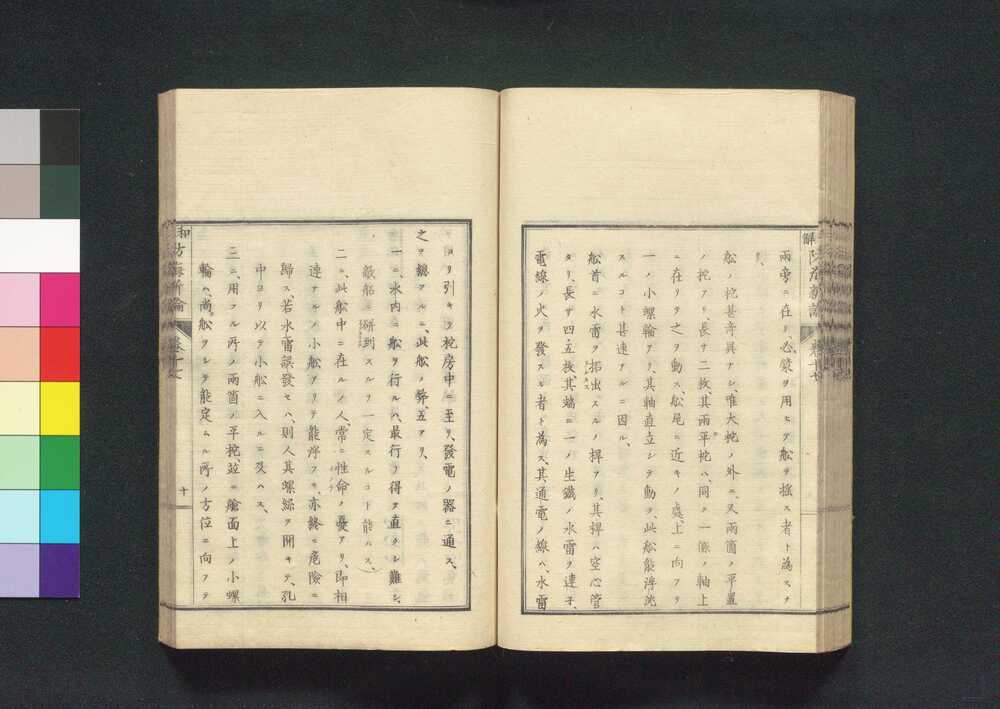 兩旁ニ在リ、必漿ヲ用ヒテ舩ヲ搖ス者ト為スヲ
舩ノ柁甚奇異ナシ、唯大柁ノ外ニ、又兩箇ノ平置
ノ柁アリ、長サ二枚其兩平柁ハ、同ク一條ノ軸上
ニ在リテ之ヲ動ス、舩尾ニ近キノ處、上ニ向フテ
一ノ小螺輪アリ、其軸直立シテ動ク、此舩能浮沈
スルコト甚速ナルニ因ル、
舩首ニ水雷ヲ拓出スルノ桿アリ、其桿ハ空心管
タリ、長サ四五枚、其端ニ一ノ生鐵ノ水雷ヲ連子、
電線ノ火ヲ發スル者ト為ス、其通電ノ線ハ、水雷
ヨリ引キテ柁房中ニ至リ、發電ノ器ニ通ス、
之ヲ總フルニ、此舩ノ弊、五アリ、
一ニ、水内ニ舩ヲ行ルハ、最行ヲ得ヲ直クシ難シ、
敵舩ニ硑到スルヿ一定スルコト能ハス、
二ニ、此舩中ニ在ルノ人、常ニ性命ノ憂アリ、即相
連ナルノ小舩アリテ能浮フモ、亦終ニ危險ニ
歸ス、若水雷誤發セハ、則人其螺絲ヲ開キテ、孔
中ヨリ以テ小舩ニ入ルニ及ハス、
三ニ、用フル所ノ兩箇ノ平柁、並ニ艙面上ノ小螺
輪ハ、尚舩ヲシテ能定ムル所ノ方位ニ向フテ
防海新論
卷十七
十